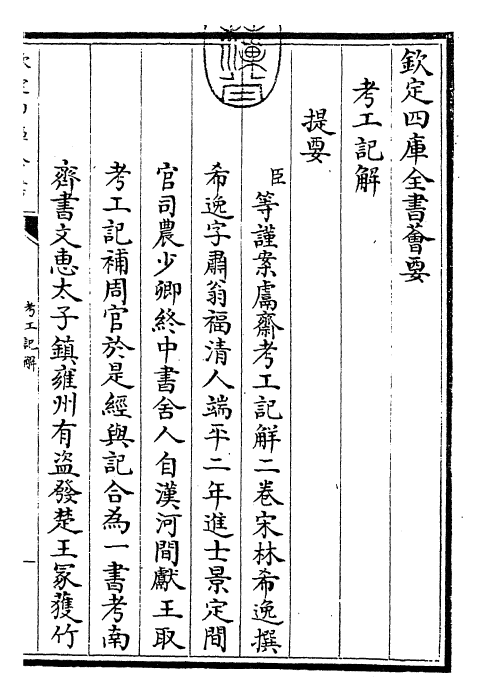 欽定四庫全書薈要
考工記解
提要
臣等謹案鬳齋考工記解二卷宋林希逸撰
希逸字肅翁福清人端平二年進士景定間
官司農少卿終中書舍人自漢河間獻王取
考工記補周官於是經與記合為一書考南
齊書文惠太子鎮雍州有盜發楚王冢獲竹
考工記解
一